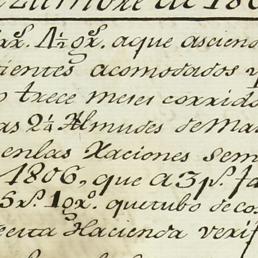 rx.ˢ 1½ gx.ˢ aque asciend
ientes acomodados y
o trece meses corrido
as 2¼ Almudes de Ma
enlas Raciones Sem
1806, que a 3 p.ˢ fa
5 rx.ˢ 1 gx.ˢ que tubo de cos
ecita Hacienda verif